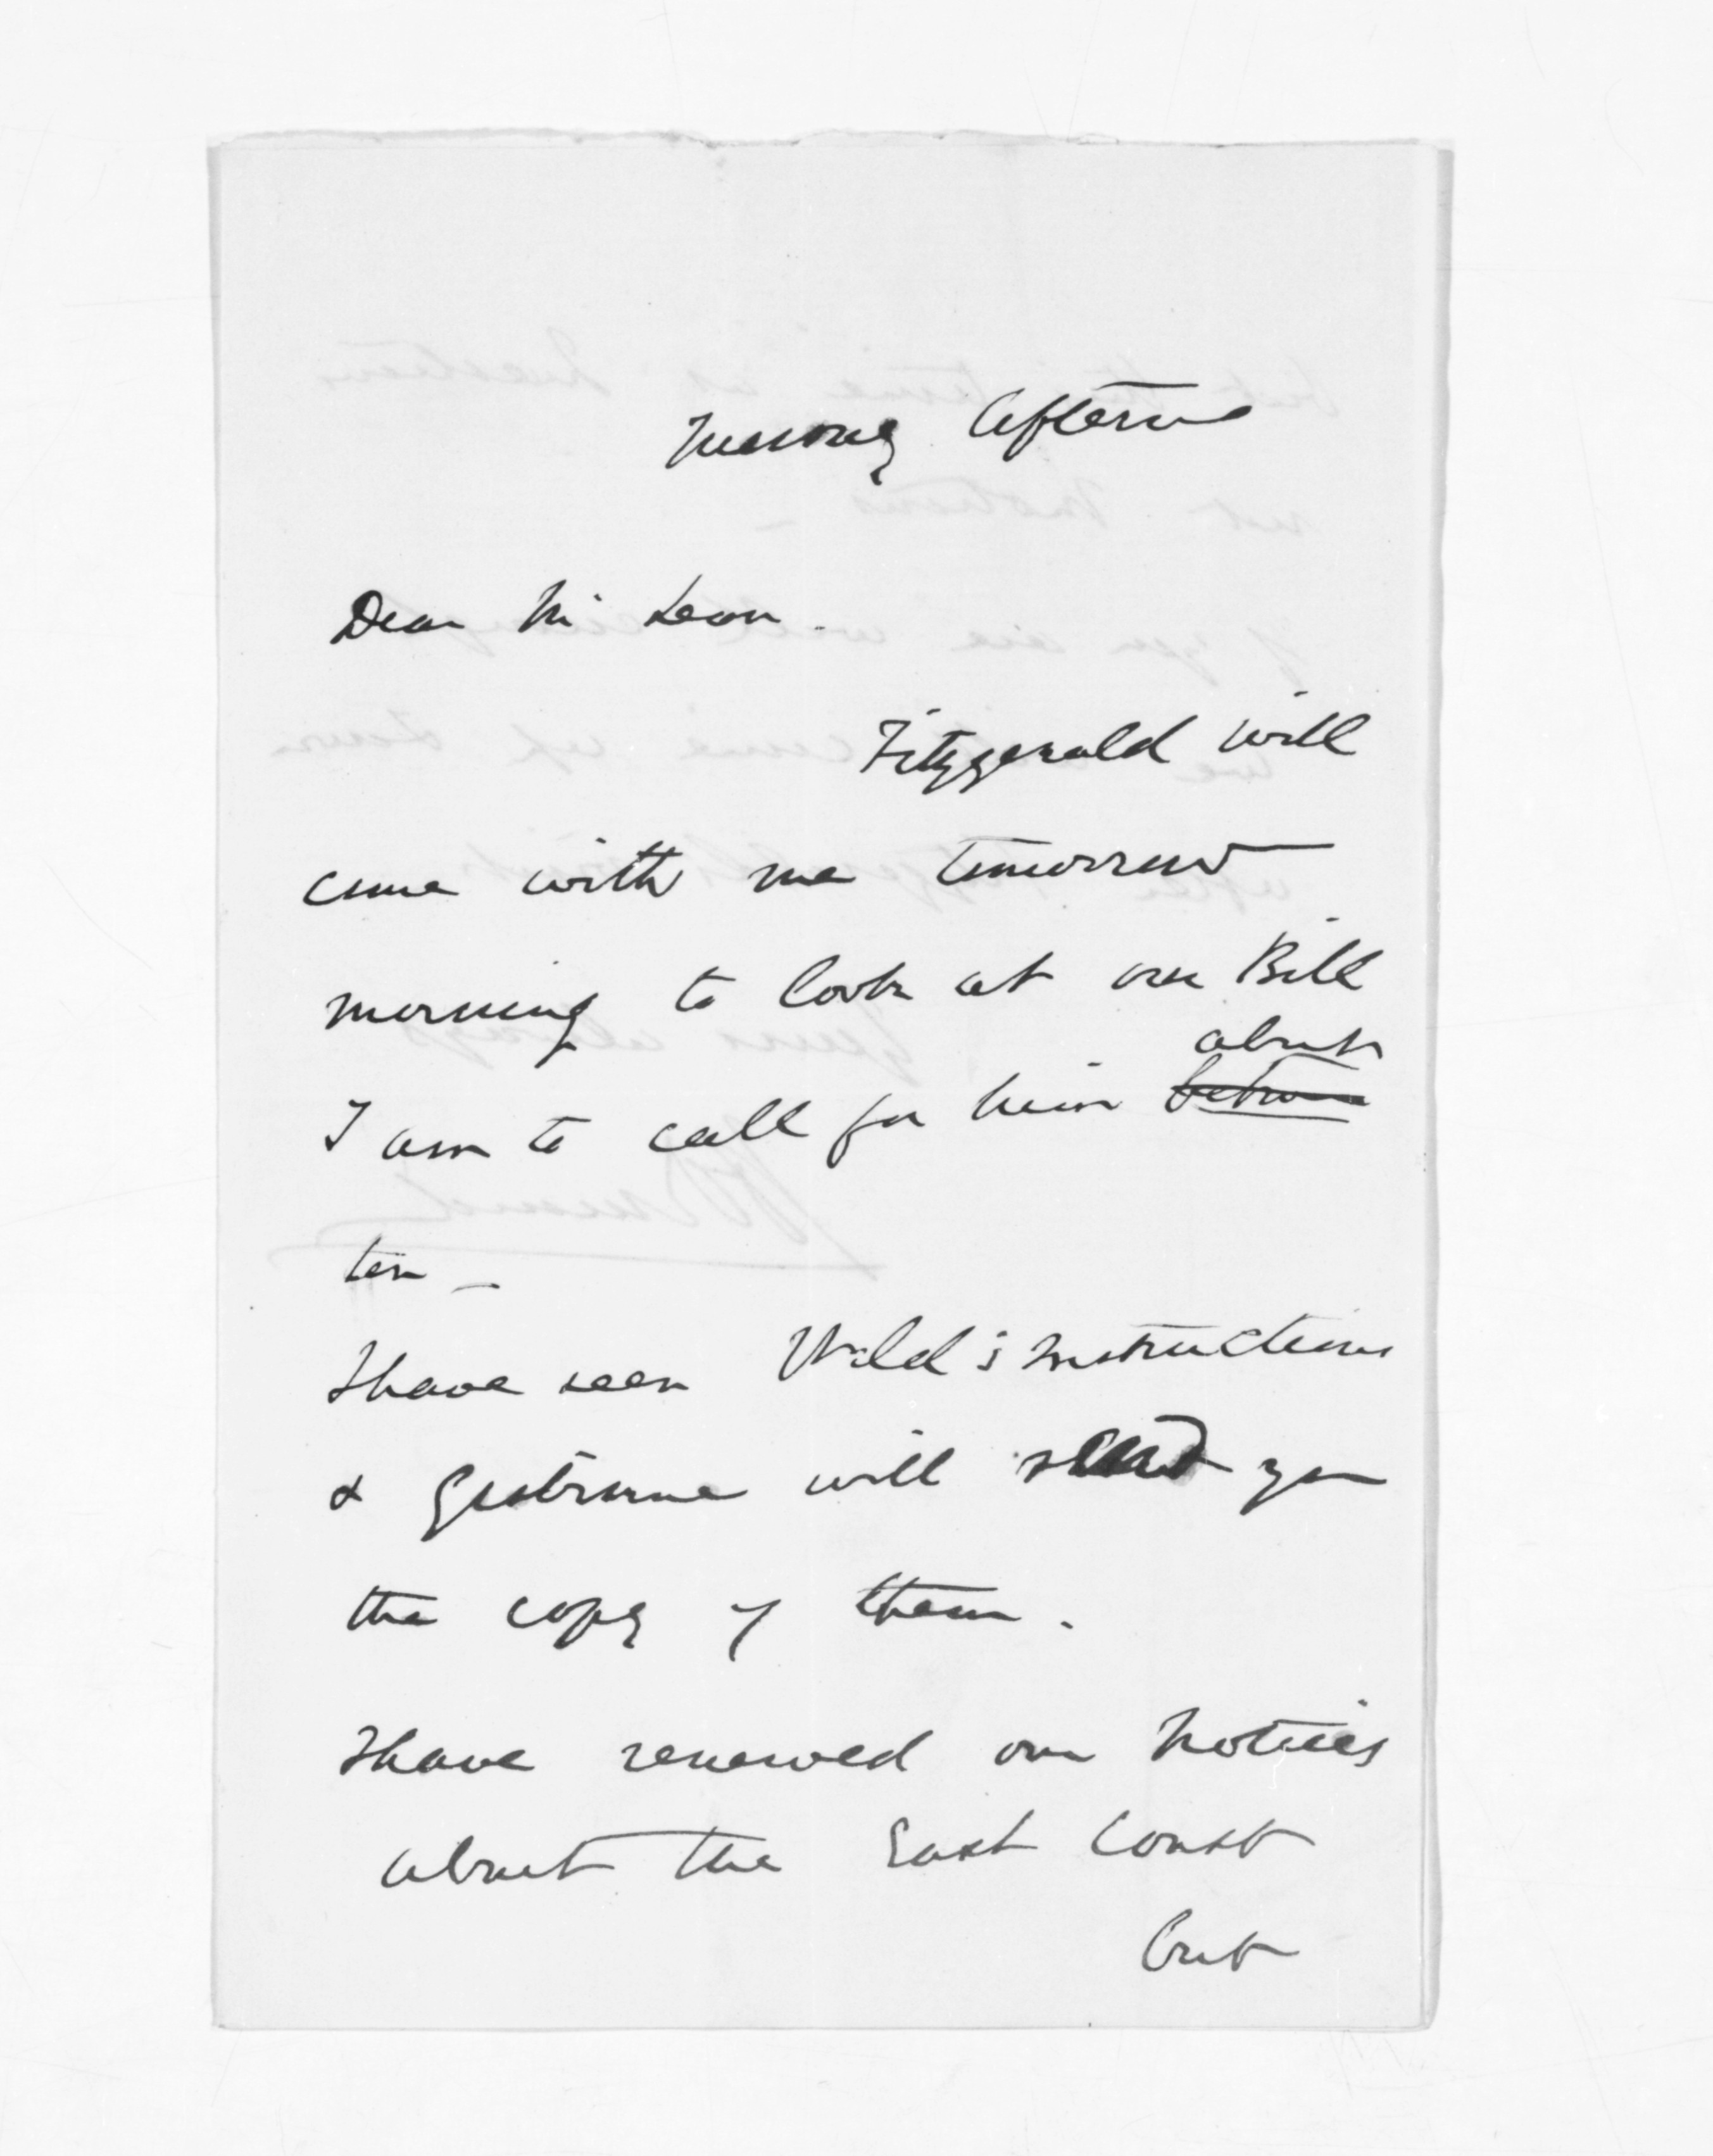 Tuesday Afternn
Dear McLean.
Fitzgerald will
come with me tomorrow
morning to look at our Bill
about
I am to call for him between
ten _
I have seen Weld's instructions
& Gisborne will send you
the copy of them.
I have renewed our notices
about the East Coast
But